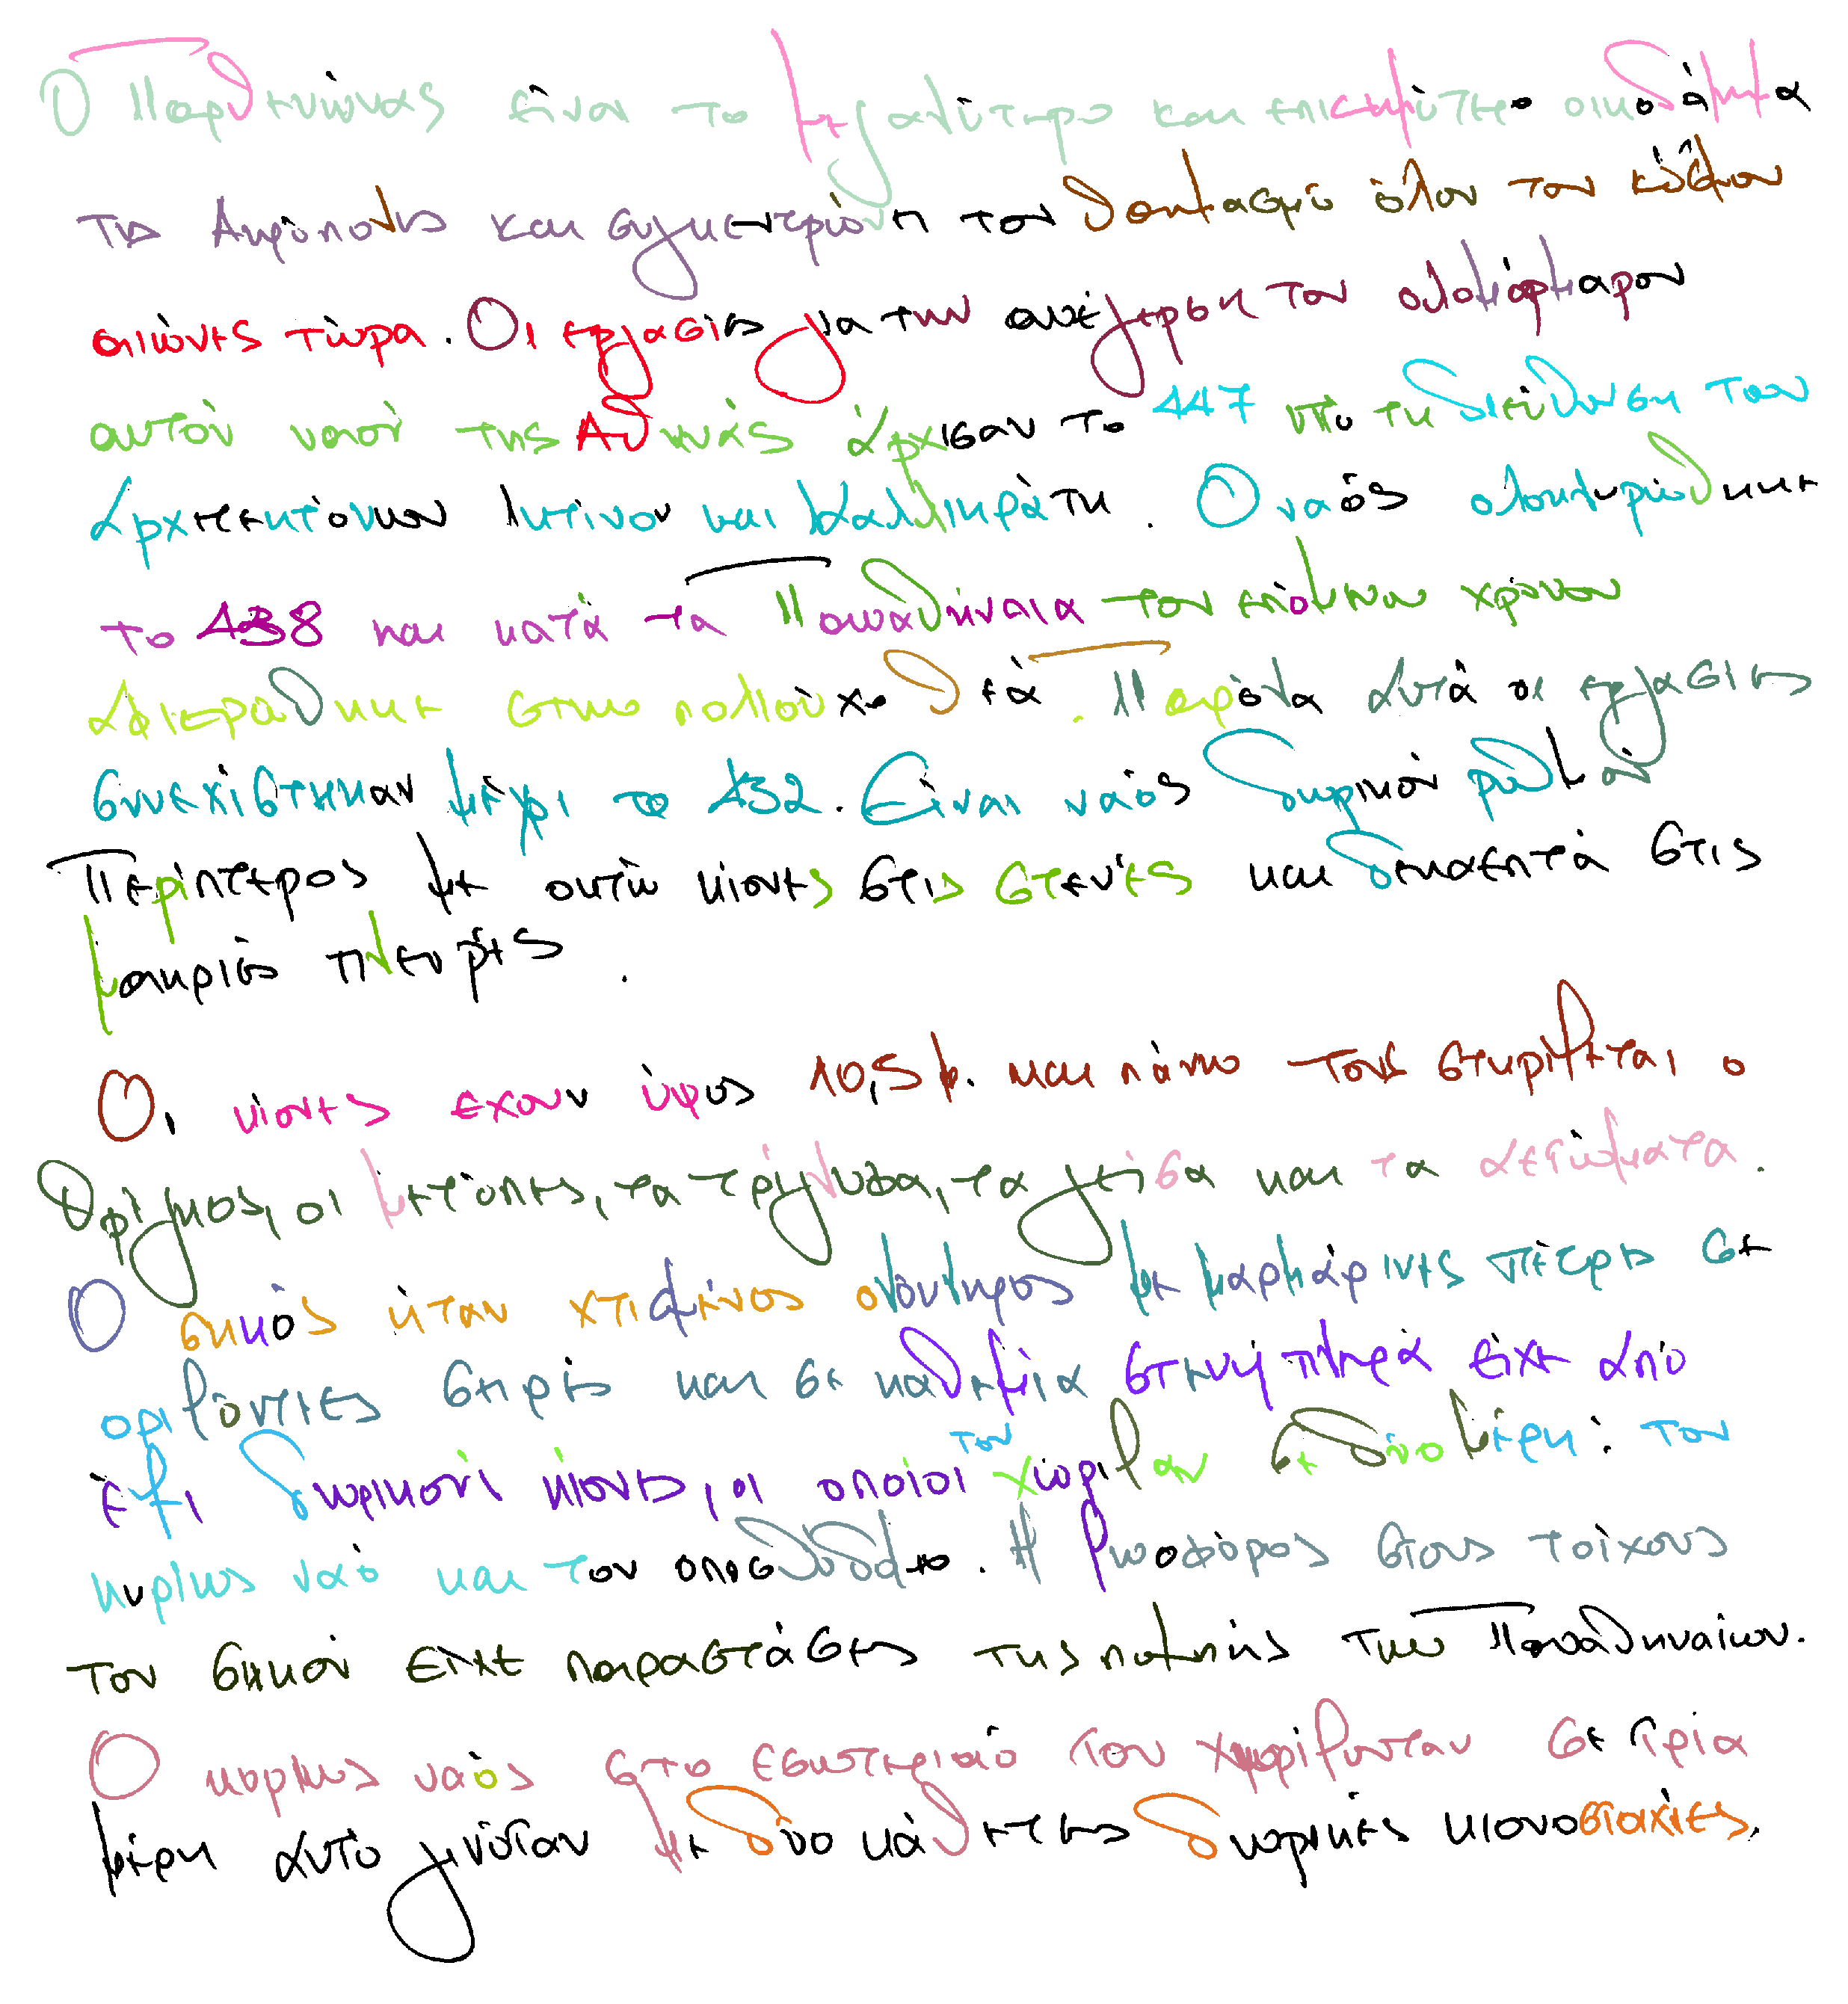 Ο Παρθενώνας είναι το μεγαλύτερο και επισημότερο οικοδόμημα
της Ακρόπολης και συγκεντρώνει τον θαυμασμό όλου του κόσμου
αιώνες τώρα. Οι εργασίες για την ανέγερση του ολομάρμαρου
αυτού ναού της Αθηνάς άρχισαν το 447 υπό τη διεύθυνση των
αρχιτεκτόνων Ικτίνου και Καλλικράτη. Ο ναός ολοκληρώθηκε
το 438 και κατά τα Παναθήναια του επόμενου χρόνου
αφιερώθηκε στην πολιούχο θεά. Παρόλα αυτά οι εργασίες
συνεχίστηκαν μέχρι το 432. Είναι ναός δωρικού ρυθμού
περίπτερος με οκτώ κίονες στις στενές και δεκαεπτά στις
μακριές πλευρές.
Οι κίονες έχουν ύψος 10,5 μ. και πάνω τους στηρίζεται ο
θριγκός, οι μετόπες, τα τρίγλυφα, τα γείσα και τα αετώματα.
Ο σηκός ήταν χτισμένος ολόκληρος με μαρμάρινες πέτρες σε
οριζόντιες σειρές και σε καθεμία στενή πλευρά είχε από
έξι δωρικούς κίονες, οι οποίοι τον χώριζαν σε δύο μέρη: τον
κυρίως ναό και τον οπισθόδομο. Η ζωοφόρος στους τοίχους
του σηκού είχε παραστάσεις της πομπής των Παναθηναίων.
Ο κυρίως ναός στο εσωτερικό του χωρίζονταν σε τρία
μέρη αυτό γινόταν με δύο κάθετες δωρικές κιονοστοιχίες.